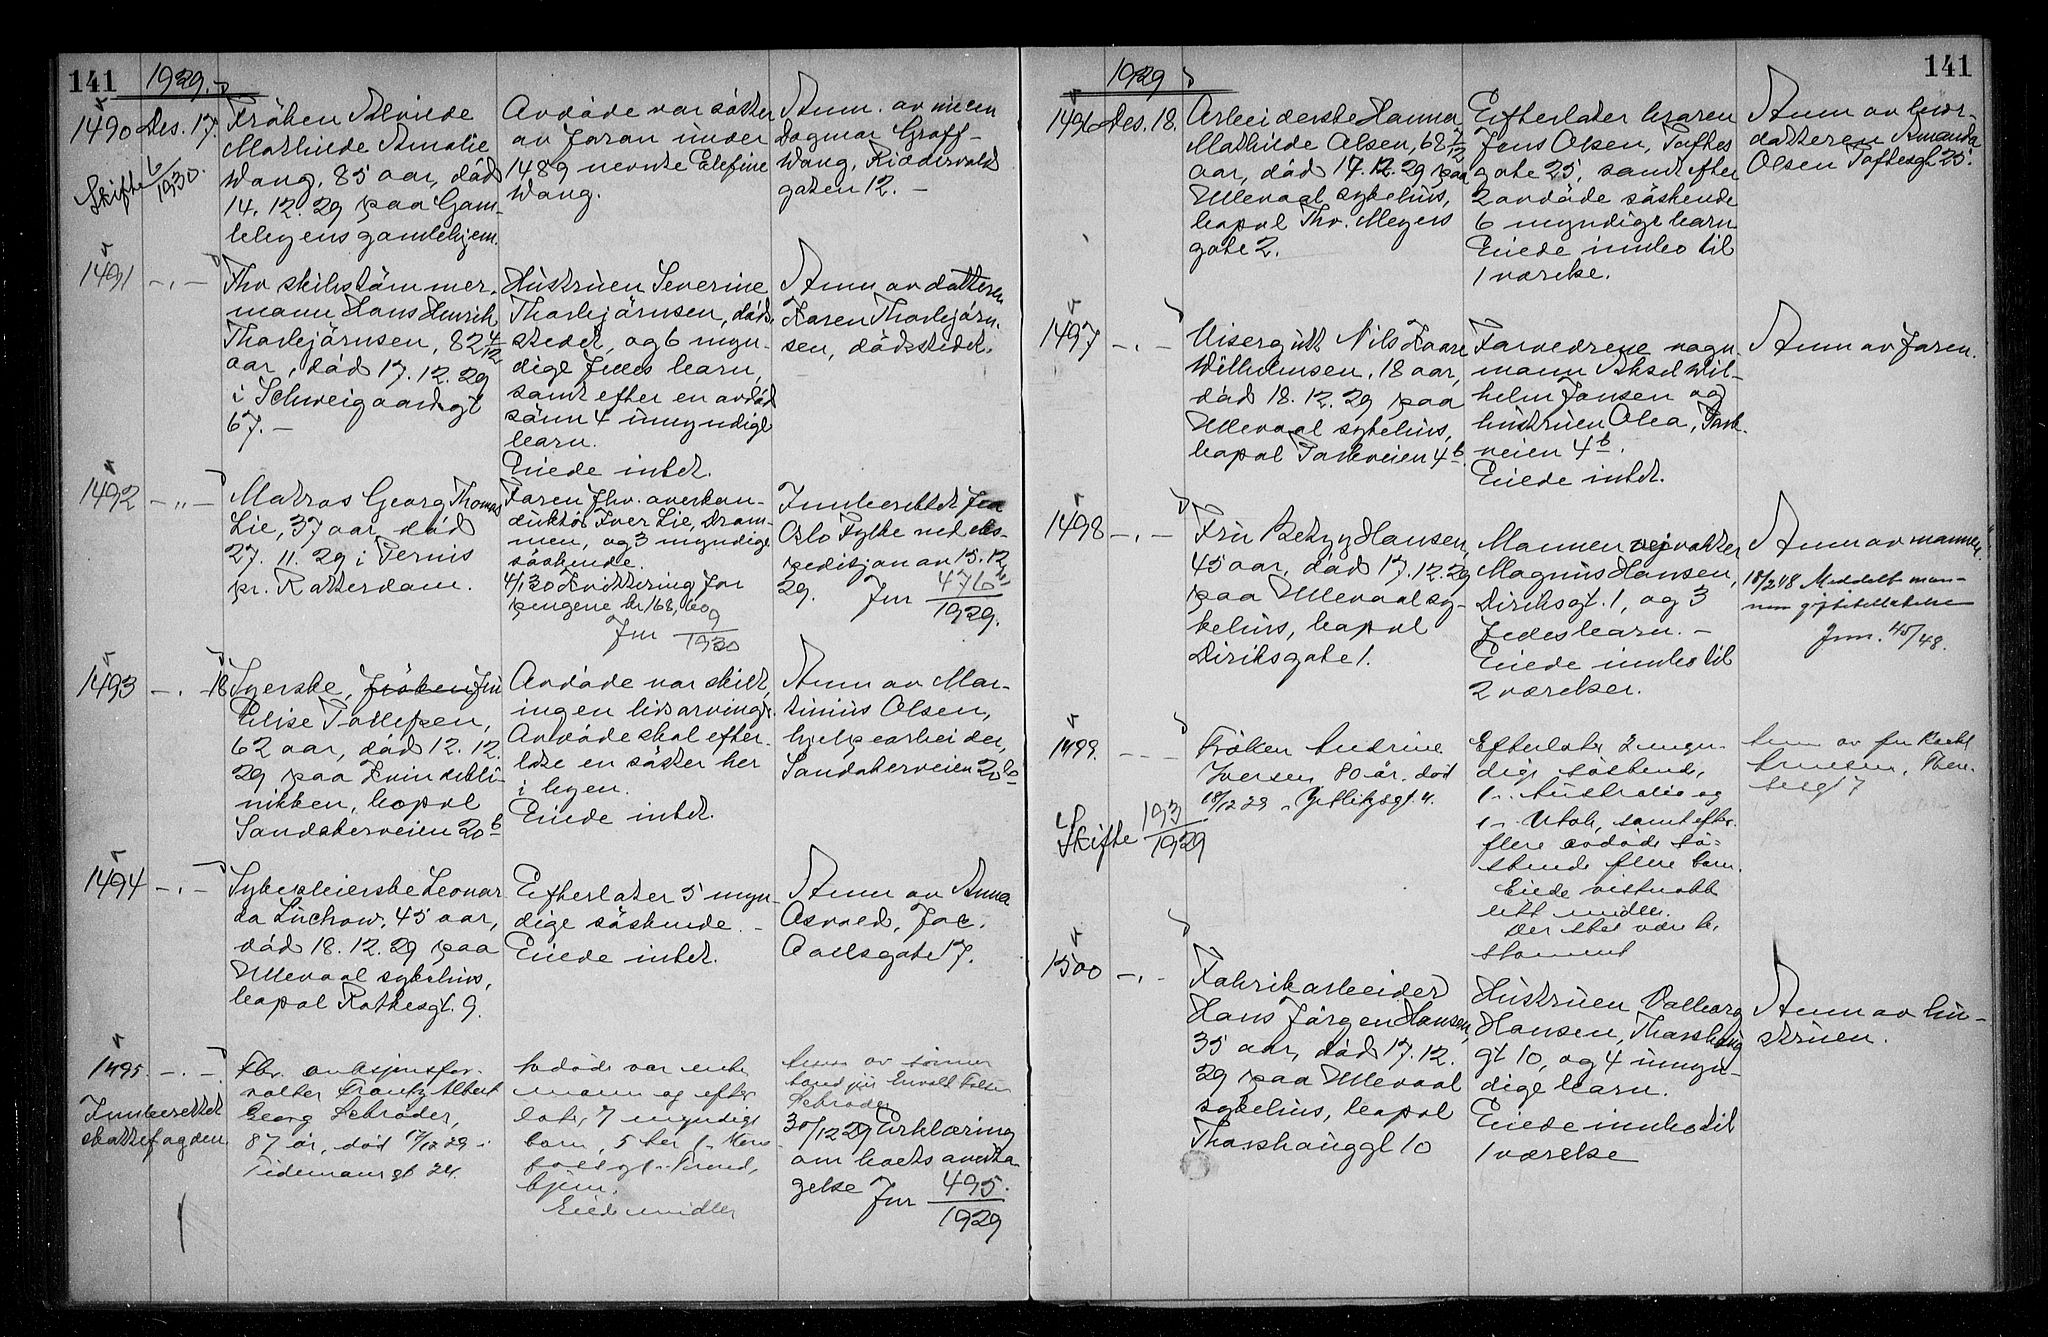 141
1929.
1490 Des. 17.
Skifte 6/1930.
Frøken Alvilde
Mathilde Amalie
Wang, 85 aar, død
14.12.29 paa Gam-
lebyens gamlehjem.
Avdøde var søster
av foran under
1489 nevnte Elefine
Wang.
Anm. av niecen
Dagmar Graff-
Wang, Riddervolds
gaten 12. –
1491 – " –
Fhv skibstømmer-
mann Hans Henrik
Thorbjørnsen, 82 4/12
aar, død 17.12.29
i Schweigaardsgt
67. –
Hustruen Severine
Thorbjørnsen, døds-
stedet, og 6 myn-
dige fælles barn,
samt efter en avdød
sønn 4 umyndige
barn.
Eiede intet.
Anm av datteren
Karen Thorbjørn-
sen, dødsstedet.
1492 – " –
Matros Georg Thomas
Lie, 37 aar, død
27.11.29 i Pernis
pr. Rotterdam.
Faren fhv. overkon-
duktør Iver Lie, Dram-
men, og 3 myndige
søskende.
4/1 30 Kvittering for
pengene kr 168,60
Jnr 9/1930
Innberettet fra
Oslo Fylke ved eks-
pedisjon av 15.12.
29. Jnr 476/1929.
1493 – " – 18
Syerske, frøken fru
Elise Tollefsen,
62 aar, død 12.12.
29 paa Kvinnekli-
nikken, bopæl
Sandakerveien 20 b
Avdøde var skilt,
ingen livsarvinger.
Avdøde skal efter-
late en søster her
i byen.
Eiede intet.
Anm av Mar-
tinius Olsen,
hjelpearbeider,
Sandakerveien 20 b
1494 – " –
Sykepleierske Leonar
da Lüchow, 45 aar,
død 18.12.29 paa
Ullevaal sykehus,
bopæl Rathkesgt. 9.
Efterlater 5 myn-
dige søskende. –
Eiede intet.
Anm av Anna
Osvald, Jac.
Aallsgate 17.
1495. – " –
Innberettet
skattefogden
Fhv. auksjonsfor-
valter Frantz Albert
Georg Schrøder,
87 år, død 17/12 29 i
Tidemansgt 24.
Avdøde var enke
mann og efter
later 7 myndige
barn, 5 her
Eiede midler
Anm av sønnen
Schrøder
30/12 29 Erklæring
om boets overta
gelse Jnr 495/1929
141
1929
1496 Des. 18.
Arbeiderske Hanna
Mathilde Olsen, 68 7/12
aar, død 17.12.29 paa
Ullevaal sykehus,
bopæl Thv. Meyers
gate 2.
Efterlater broren
Jens Olsen, Toftes
gate 25, samt efter
2 avdøde søskende
6 myndige barn
Eiede innbo til
1 værelse.
Anm av bror-
datteren Amanda
Olsen Toftesgt. 25.
1497 – " –
Visergutt Nils Kaare
Wilhelmsen, 18 aar,
død 18.12.29 paa
Ullevaal sykehus,
bopæl Parkveien 4 b.
Forældrene vogn-
mann Aksel Wil-
helm Jansen og
hustruen Olea, Park-
veien 4 b.
Eiede intet.
Anm av faren.
1498 – " –
Fru Betzy Hansen,
45 aar, død 17.12.29
paa Ullevaal sy-
kehus, bopæl
Diriksgate 1.
Mannen veivokter
Magnus Hansen,
Diriksgt. 1, og 3
fælles barn. –
Eiede innbo til
2 værelser.
Anm av mannen.
18/2 48 Meddelt man-
nen giftetillatelse
Jnr. 45/48.
1499. – –
Skifte 193/1929
Frøken Andrine
Iversen 80 år. død
18/12 29
Efterlater 2 myn-
dige søskende,
1 i Australia og
1 i Utah, samt efter
flere avdøde sø-
skende flere barn.
Eiede visstnokk
litt midler.
Der skal være te-
stament
Anm av fru
1500 – " –
Fabrikarbeider
Hans Jørgen Hansen,
35 aar, død 17.12.
29 paa Ullevaal
sykehus, bopæl
Thorshauggt 10
Hustruen Valborg
Hansen, Thorshaug
gt 10, og 4 umyn-
dige barn.
Eiede innbo til
1 værelse
Anm av hu-
struen.